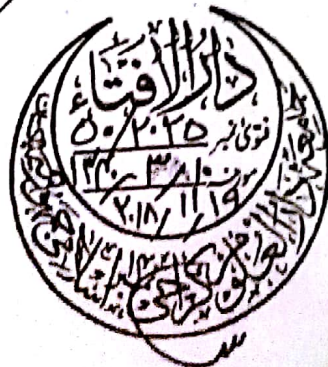 دارالافتاء
فتویٰ نمبر ۵۰/۲۰۲۵
۱۰/۳/۱۴۴۰
۲۰۱۸/۱۱/۱۹
دارالعلوم کراچی